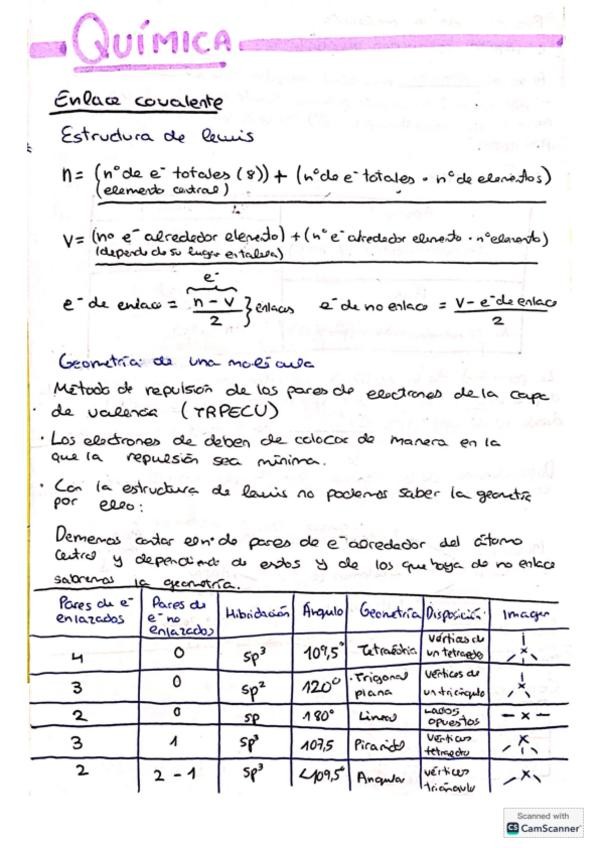 QUÍMICA
Enlace covalente
Estructura de lewis
n= (nº de e⁻ totales (8)) + (nº de e⁻ totales · nº de elementos)
(elemento central)
V= (no e⁻ alrededor elemento) + (nº e⁻ alrededor elemento · nº elemento)
(depende de su lugar en tabla)
e⁻
e⁻ de enlace = n - v / 2 } enlaces e⁻ de no enlace = v - e⁻ de enlace / 2
Geometría de una molécula
Método de repulsión de los pares de electrones de la capa
de valencia (TRPECV)
· Los electrones de deben de colocar de manera en la
que la repulsión sea mínima.
· Con la estructura de lewis no podemos saber la geometría
por ello:
Dememos contar el nº de pares de e⁻ alrededor del átomo
central y dependiendo de estos y de los que haya de no enlace
sabremos la geometría.
Pares de e⁻ enlazados Pares de e⁻ no enlazados Hibridación Ángulo Geometría Disposición Imagen
4 0 sp³ 109,5° Tetraédrica vértices de un tetraedro
3 0 sp² 120° Trigonal plana vérticas de un triángulo
2 0 sp 180° Lineal Lados opuestos - x -
3 1 sp³ 107,5 Piramidal vértices tetraedro
2 2-1 sp³ <109,5° Angular vértices triángulo
Scanned with
CS CamScanner